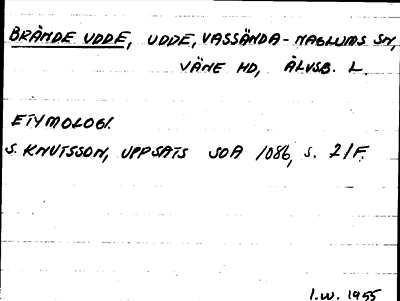 BRÄNDE UDDE, UDDE, VASSÄNDA-NAGLUMS SN,
VÄNE HD, ÄLVSB. L.
ETYMOLOGI.
S. KNUTSSON, UPPSATS SOA 1086, S. 21F.
I.W. 1955